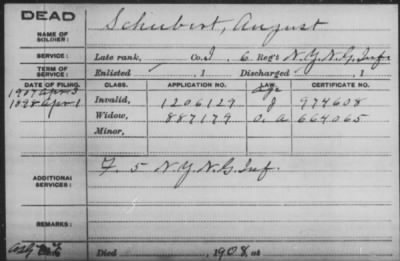 DEAD
NAME OF SOLDIER:
Schubert, August
SERVICE:
Late rank, Co. I 6 Reg't N.Y.N.G. Inf.
TERM OF SERVICE:
Enlisted , 1 Discharged , 1
DATE OF FILING. CLASS. APPLICATION NO. LAW. CERTIFICATE NO.
1907 Apr 3 Invalid, 1206129 J 974608
1898 Apr 1 Widow, 887179 O. A 664065
Minor,
ADDITIONAL SERVICES:
F. 5 N.Y.N.G. Inf.
REMARKS:
Died , 1908, at